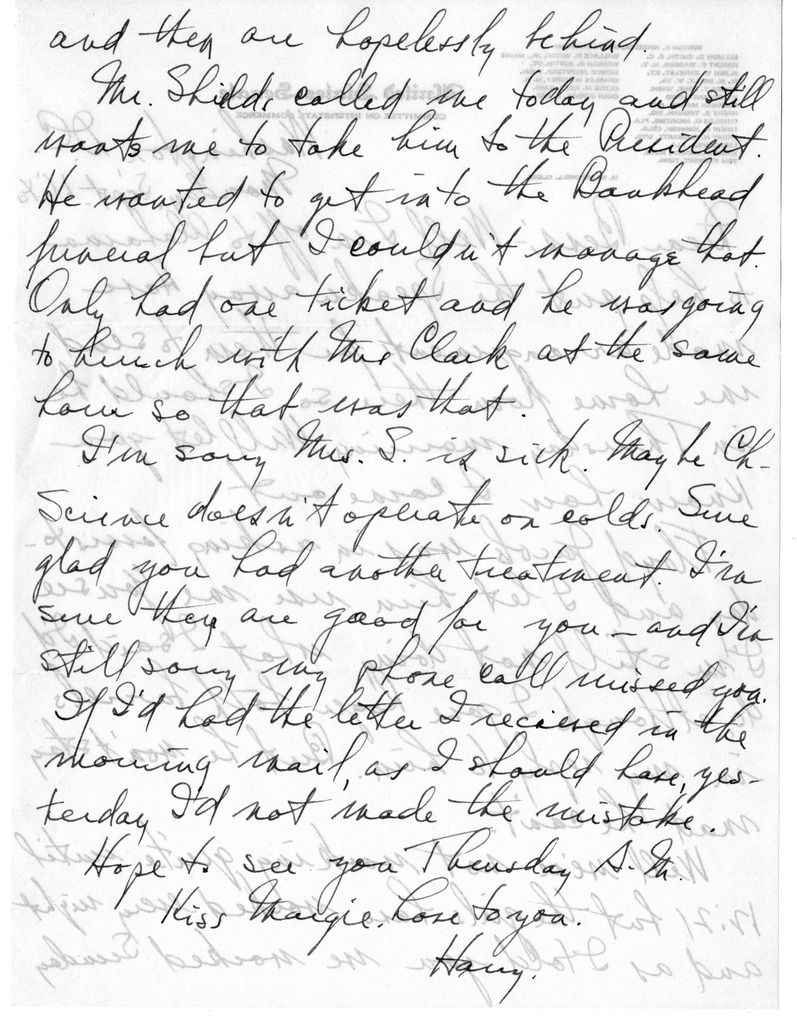 and then are hopelessly behind.
Mr. Shields called me today and still
wants me to take him to the President.
He wanted to get into the Bankhead
funeral but I couldn't manage that.
Only had one ticket and he was going
to lunch with Mrs Clark at the same
hour so that was that.
I'm sorry Mrs. S. is sick. Maybe Ch-
Science doesn't operate on colds. Sure
glad you had another treatment. I'm
sure they are good for you - and I'm
still sorry my phone call missed you.
If I'd had the letter I recieved in the
morning mail, as I should have, yes-
terday I'd not made the mistake.
Hope to see you Thursday A.M.
Kiss Margie. Love to you.
Harry.